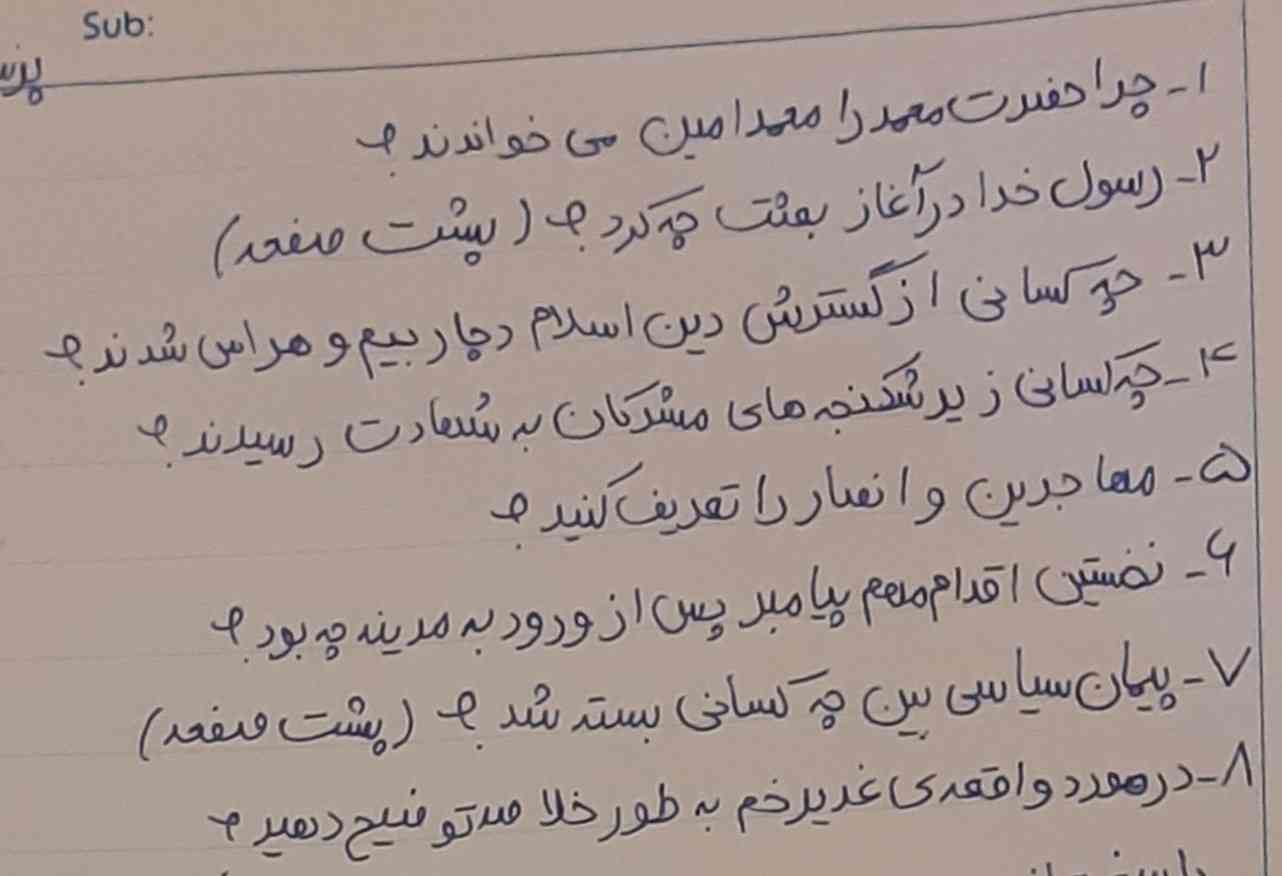 Sub:
۱- چرا حضرت محمد را محمد امین می خواندند؟
۲- رسول خدا در آغاز بعثت چه کرد؟ (پشت صفحه)
۳- چه کسانی از گسترش دین اسلام دچار بیم و هراس شدند؟
۴- چه کسانی زیر شکنجه های مشرکان به شهادت رسیدند؟
۵- مهاجرین و انصار را تعریف کنید؟
۶- نخستین اقدام مهم پیامبر پس از ورود به مدینه چه بود؟
۷- پیمان سیاسی بین چه کسانی بسته شد؟ (پشت صفحه)
۸- در مورد واقعه ی غدیر خم به طور خلاصه توضیح دهید؟